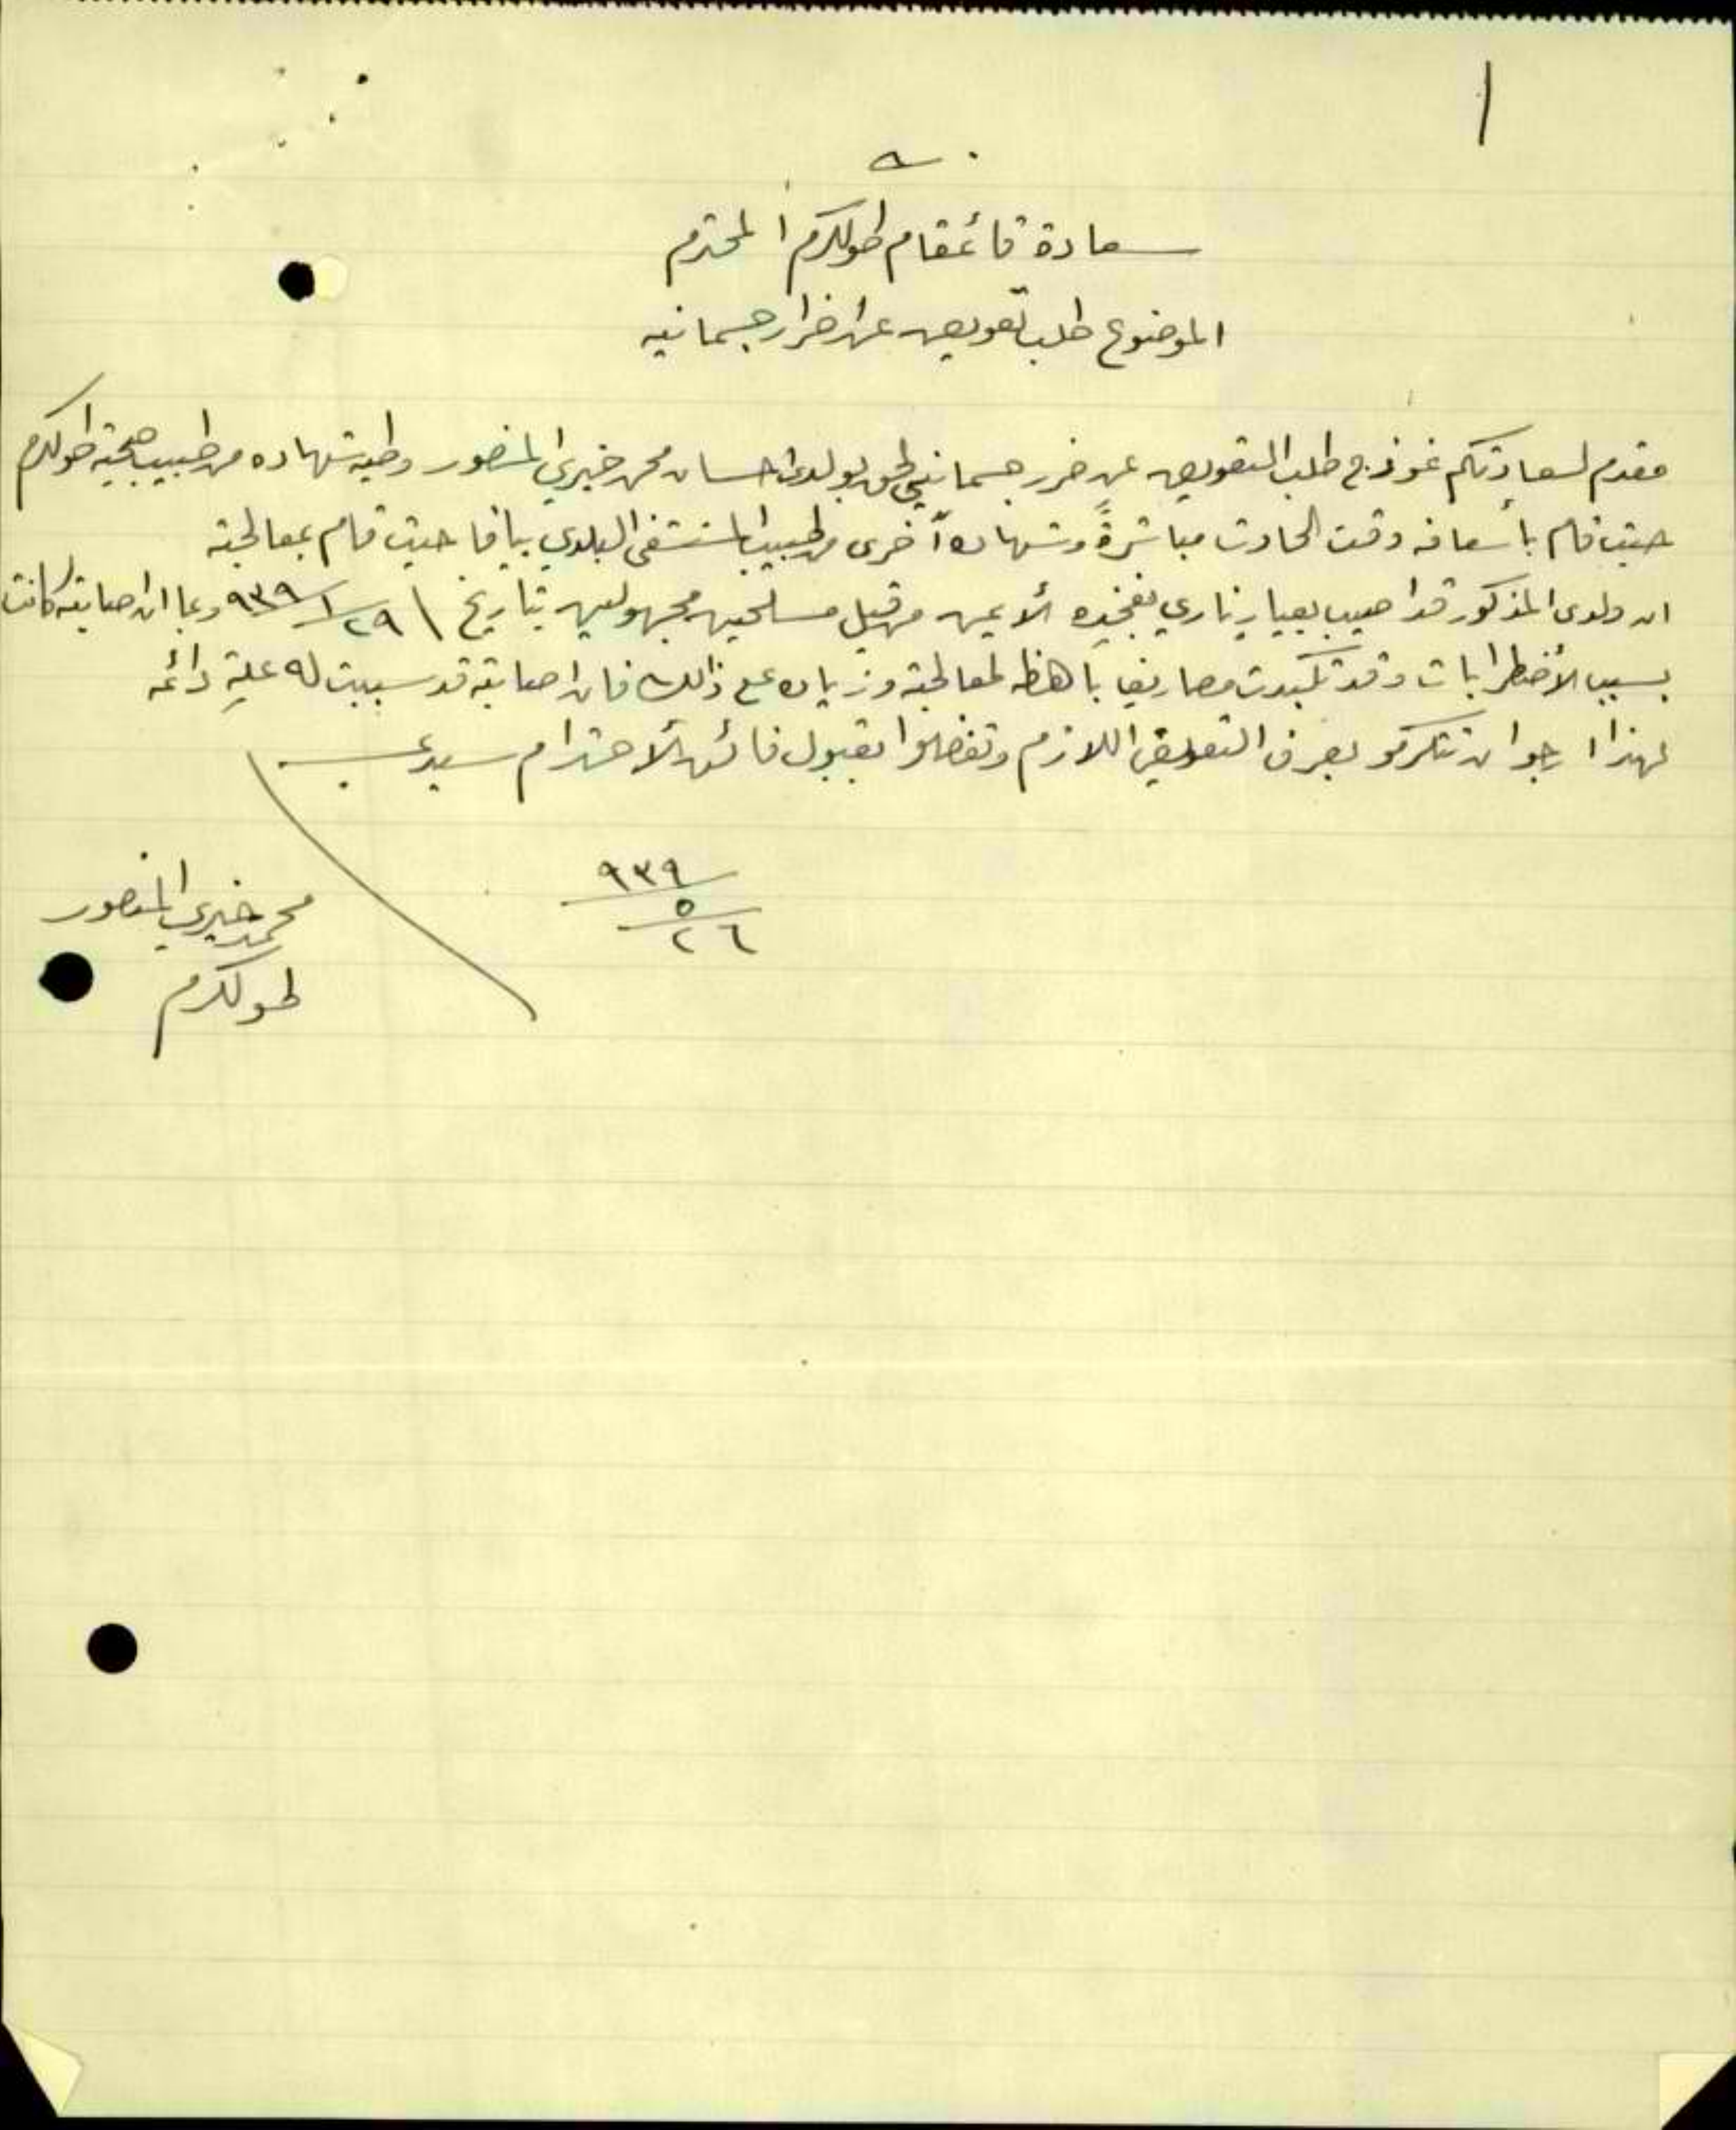 ١
سعادة قائمقام طولكرم المحترم
الموضوع طلب تعويض عن اضرار جسمانيه
مقدم لسعادتكم نموذج طلب التعويض عن ضرر جسماني لحق بولدي احسان محمد خيري المنصور وطيه شهاده من طبيب صحية طولكرم
حيث قام بأسعافه وقت الحادث مباشرةً وشهاده أخرى من طبيب المستشفى البلدي بيافا حيث قام بمعالجته
ان ولدي المذكور قد اصيب بعيار ناري بفخذه الأيمن من قبل مسلحين مجهولين بتاريخ ٢٩/١/٩٣٩ وبما ان اصابته كانت
بسبب الأضطرابات وقد تكبدت مصاريف باهظه لمعالجته وزياده على ذالك فان اصابته قد سببت له علةٍ دائمه
لهذا ارجو ان تتكرمو بصرف التعويض اللازم وتفضلوا بقبول فائق الأحترام سيدي
٩٣٩
٥
٢٦
محمد خيري المنصور
طولكرم